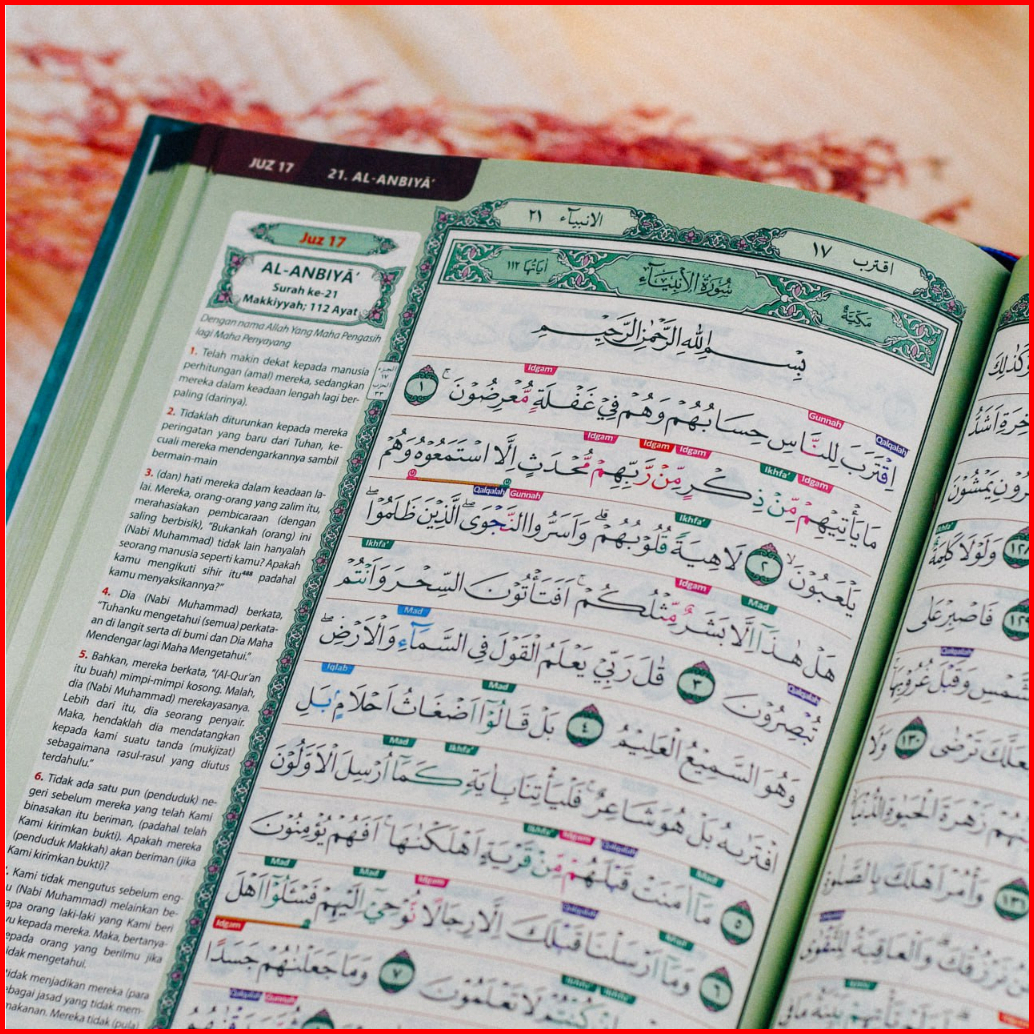 JUZ 17
21. AL-ANBIYĀ’
Juz 17
AL-ANBIYĀ’
Surah ke-21
Makkiyyah; 112 Ayat
Dengan nama Allah Yang Maha Pengasih
lagi Maha Penyayang
1. Telah makin dekat kepada manusia
perhitungan (amal) mereka, sedangkan
mereka dalam keadaan lengah lagi ber-
paling (darinya).
2. Tidaklah diturunkan kepada mereka
peringatan yang baru dari Tuhan, ke-
cuali mereka mendengarkannya sambil
bermain-main
3. (dan) hati mereka dalam keadaan la-
lai. Mereka, orang-orang yang zalim itu,
merahasiakan pembicaraan (dengan
saling berbisik), "Bukankah (orang) ini
(Nabi Muhammad) tidak lain hanyalah
seorang manusia seperti kamu? Apakah
kamu mengikuti sihir itu⁴⁸⁸ padahal
kamu menyaksikannya?"
4. Dia (Nabi Muhammad) berkata,
"Tuhanku mengetahui (semua) perkata-
an di langit serta di bumi dan Dia Maha
Mendengar lagi Maha Mengetahui."
5. Bahkan, mereka berkata, "(Al-Qur'an
itu buah) mimpi-mimpi kosong. Malah,
dia (Nabi Muhammad) merekayasanya.
Lebih dari itu, dia seorang penyair.
Maka, hendaklah dia mendatangkan
kepada kami suatu tanda (mukjizat)
sebagaimana rasul-rasul yang diutus
terdahulu."
6. Tidak ada satu pun (penduduk) ne-
geri sebelum mereka yang telah Kami
binasakan itu beriman, (padahal telah
Kami kirimkan bukti). Apakah mereka
(penduduk Makkah) akan beriman (jika
Kami kirimkan bukti)?
Kami tidak mengutus sebelum eng-
(Nabi Muhammad) melainkan be-
apa orang laki-laki yang Kami beri
kepada mereka. Maka, bertanya-
kepada orang yang berilmu jika
tidak mengetahui.
tidak menjadikan mereka (para
sebagai jasad yang tidak mem-
makanan. Mereka tidak (pula)
الانبيآء ٢١
اقترب ١٧
مَكِّيَّةٌ
سُوْرَةُ الْأَنْبِيَآءِ
اٰيَاتُهَا ١١٢
بِسْمِ اللّٰهِ الرَّحْمٰنِ الرَّحِيْمِ
Idgam Gunnah Qalqalah
اِقْتَرَبَ لِلنَّاسِ حِسَابُهُمْ وَهُمْ فِيْ غَفْلَةٍ مُّعْرِضُوْنَ ۚ ١
Idgam Idgam Idgam Ikhfa' Idgam
مَا يَأْتِيْهِمْ مِّنْ ذِكْرٍ مِّنْ رَّبِّهِمْ مُّحْدَثٍ اِلَّا اسْتَمَعُوْهُ وَهُمْ
Qalqalah Gunnah Ikhfa'
يَلْعَبُوْنَ ۙ ٢ لَاهِيَةً قُلُوْبُهُمْ ۗ وَاَسَرُّوا النَّجْوَى ۖ الَّذِيْنَ ظَلَمُوْا ۖ
Ikhfa' Idgam Mad
هَلْ هٰذَآ اِلَّا بَشَرٌ مِّثْلُكُمْ ۚ اَفَتَأْتُوْنَ السِّحْرَ وَاَنْتُمْ
Mad Qalqalah
تُبْصِرُوْنَ ٣ قٰلَ رَبِّيْ يَعْلَمُ الْقَوْلَ فِى السَّمَاۤءِ وَالْاَرْضِ ۖ
Iqlab Mad
وَهُوَ السَّمِيْعُ الْعَلِيْمُ ٤ بَلْ قَالُوْٓا اَضْغَاثُ اَحْلَامٍۢ بَلِ
Mad Ikhfa'
افْتَرٰىهُ بَلْ هُوَ شَاعِرٌ ۚ فَلْيَأْتِنَا بِاٰيَةٍ كَمَآ اُرْسِلَ الْاَوَّلُوْنَ
Ikhfa' Idgam Qalqalah Mad
٥ مَآ اٰمَنَتْ قَبْلَهُمْ مِّنْ قَرْيَةٍ اَهْلَكْنٰهَا ۚ اَفَهُمْ يُؤْمِنُوْنَ
Mad Mad Idgam Qalqalah Mad
٦ وَمَآ اَرْسَلْنَا قَبْلَكَ اِلَّا رِجَالًا نُّوْحِيْٓ اِلَيْهِمْ فَسْـَٔلُوْٓا اَهْلَ
Idgam
كُنْتُمْ لَا تَعْلَمُوْنَ ٧ وَمَا جَعَلْنٰهُمْ جَسَدًا
Qalqalah Gunnah
وَلَوْلَا كَلِمَةٌ
فَاصْبِرْ عَلٰى
Qalqalah
١٣٠
١٣١